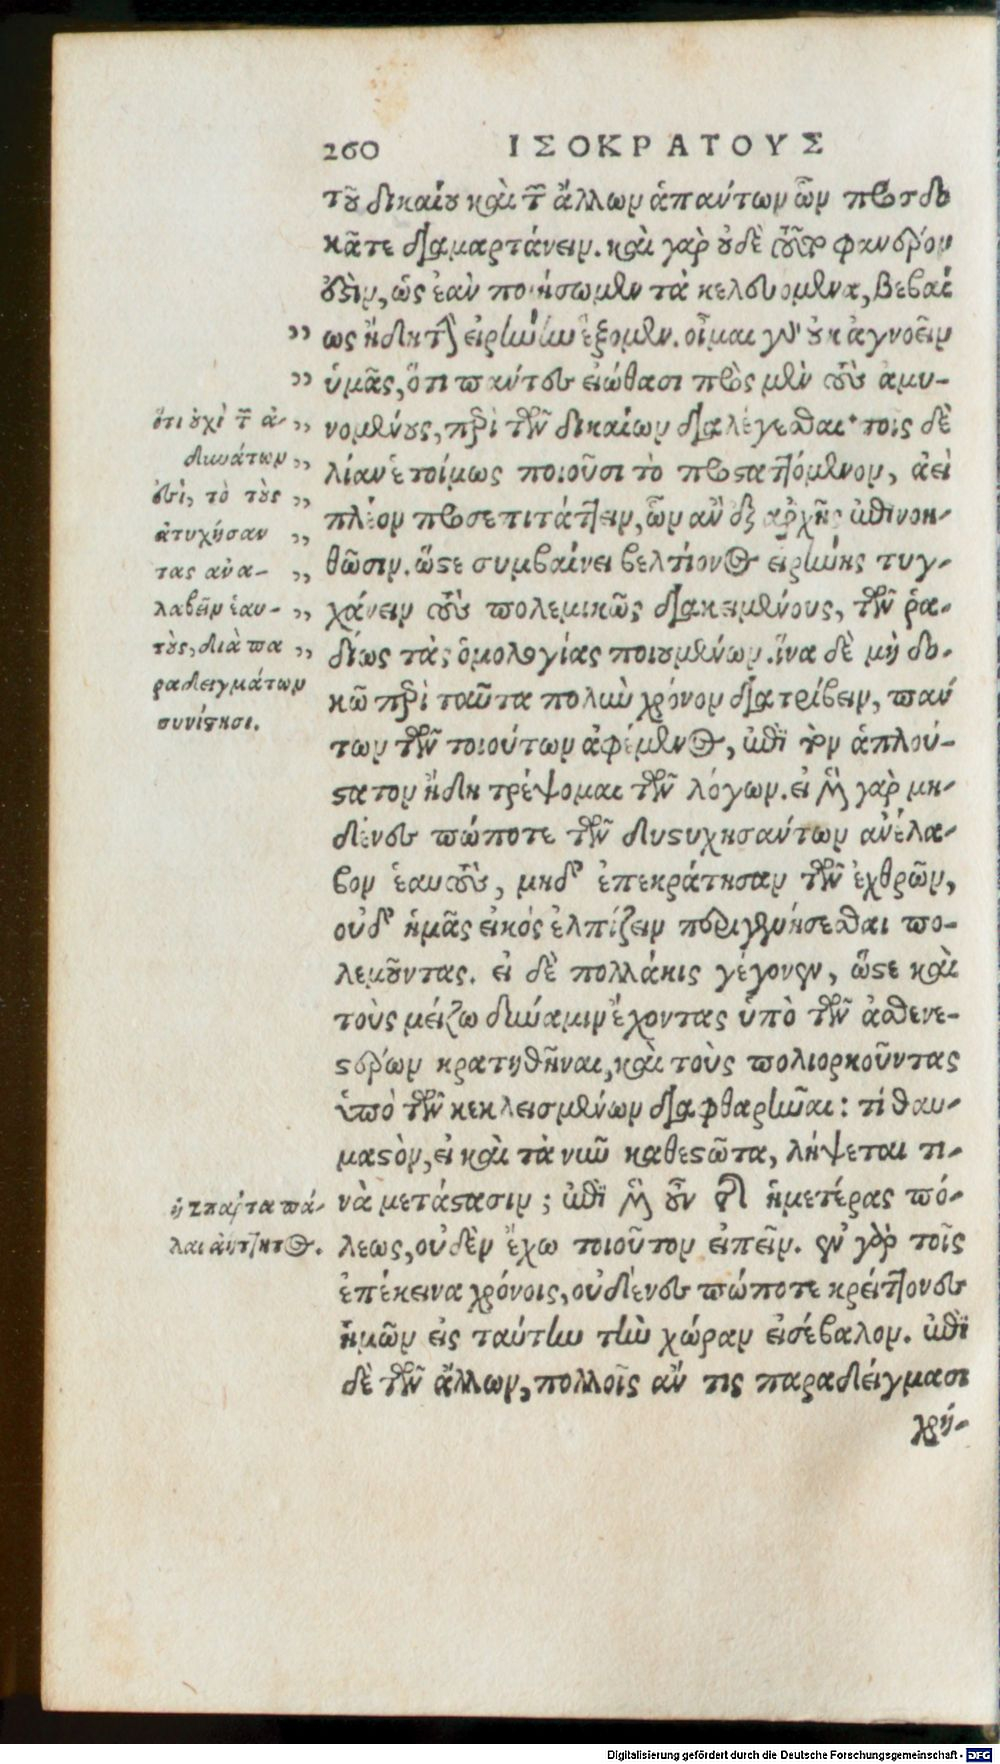 260 ΙΣΟΚΡΑΤΟΥΣ
τοῦ δικαίου καὶ τῶν ἄλλων ἁπαντων ὧν προσδο
κᾶτε διαμαρτάνειν. καὶ γὰρ οὐδὲ τοῦτο φανερόν
ἐστιν, ὡς ἐὰν ποιήσωμεν τὰ κελευόμενα, βεβαί
ως ἤδη τὴν εἰρήνην ἕξομεν. οἶμαι γὰρ οὐκ ἀγνοεῖν
ὑμᾶς, ὅτι πάντες εἰώθασι πρὸς μὲν τοὺς ἀμυ-
νομένους, περὶ τῶν δικαίων διαλέγεσθαι· τοῖς δὲ
λίαν ἑτοίμως ποιοῦσι τὸ προσταττόμενον, ἀεὶ
πλέον προσεπιτάττειν, ὧν ἂν ἐξ ἀρχῆς ἐπινοη-
θῶσιν. ὥστε συμβαίνει βελτίονος εἰρήνης τυγ-
χάνειν τοὺς πολεμικῶς διακειμένους, τῶν ῥα-
δίως τὰς ὁμολογίας ποιουμένων. ἵνα δὲ μὴ δο-
κῶ περὶ ταῦτα πολὺν χρόνον διατρίβειν, παν
των τῶν τοιούτων ἀφέμενος, ἐπὶ τὸν ἁπλού-
στατον ἤδη τρέψομαι τῶν λόγων. εἰ μὲν γὰρ μη-
δένες πώποτε τῶν δυστυχησάντων ἀνέλα-
βον ἑαυτοὺς, μηδ' ἐπεκράτησαν τῶν ἐχθρῶν,
οὐδ' ἡμᾶς εἰκός ἐλπίζειν περιγενήσεσθαι πο-
λεμοῦντας. εἰ δὲ πολλάκις γέγονεν, ὥστε καὶ
τοὺς μείζω δύναμιν ἔχοντας ὑπὸ τῶν ἀσθενε-
στέρων κρατηθῆναι, καὶ τοὺς πολιορκοῦντας
ὑπὸ τῶν κεκλεισμένων διαφθαρῆναι: τί θαυ-
μαστὸν, εἰ καὶ τὰ νῦν καθεστῶτα, λήψεται τι-
νὰ μετάστασιν; ἐπὶ μὲν οὖν τῆς ἡμετέρας πό-
λεως, οὐδὲν ἔχω τοιοῦτον εἰπεῖν. ἐν γὰρ τοῖς
ἐπέκεινα χρόνοις, οὐδένες πώποτε κρείττονες
ἡμῶν εἰς ταύτην τὴν χώραν εἰσέβαλον. ἐπὶ
δὲ τῶν ἄλλων, πολλοῖς ἄν τις παραδείγμασι
χρή-
ὅτι οὐχὶ τῶν ἀ-
δυνάτων
ἐστὶ, τὸ τοὺς
ἀτυχήσαν
τας ἀνα-
λαβεῖν ἑαυ-
τοὺς, διὰ πα
ραδειγμάτων
συνίστησι.
ἡ Σπάρτα πά-
λαι ἀήττητος.
Digitalisierung gefördert durch die Deutsche Forschungsgemeinschaft - DFG